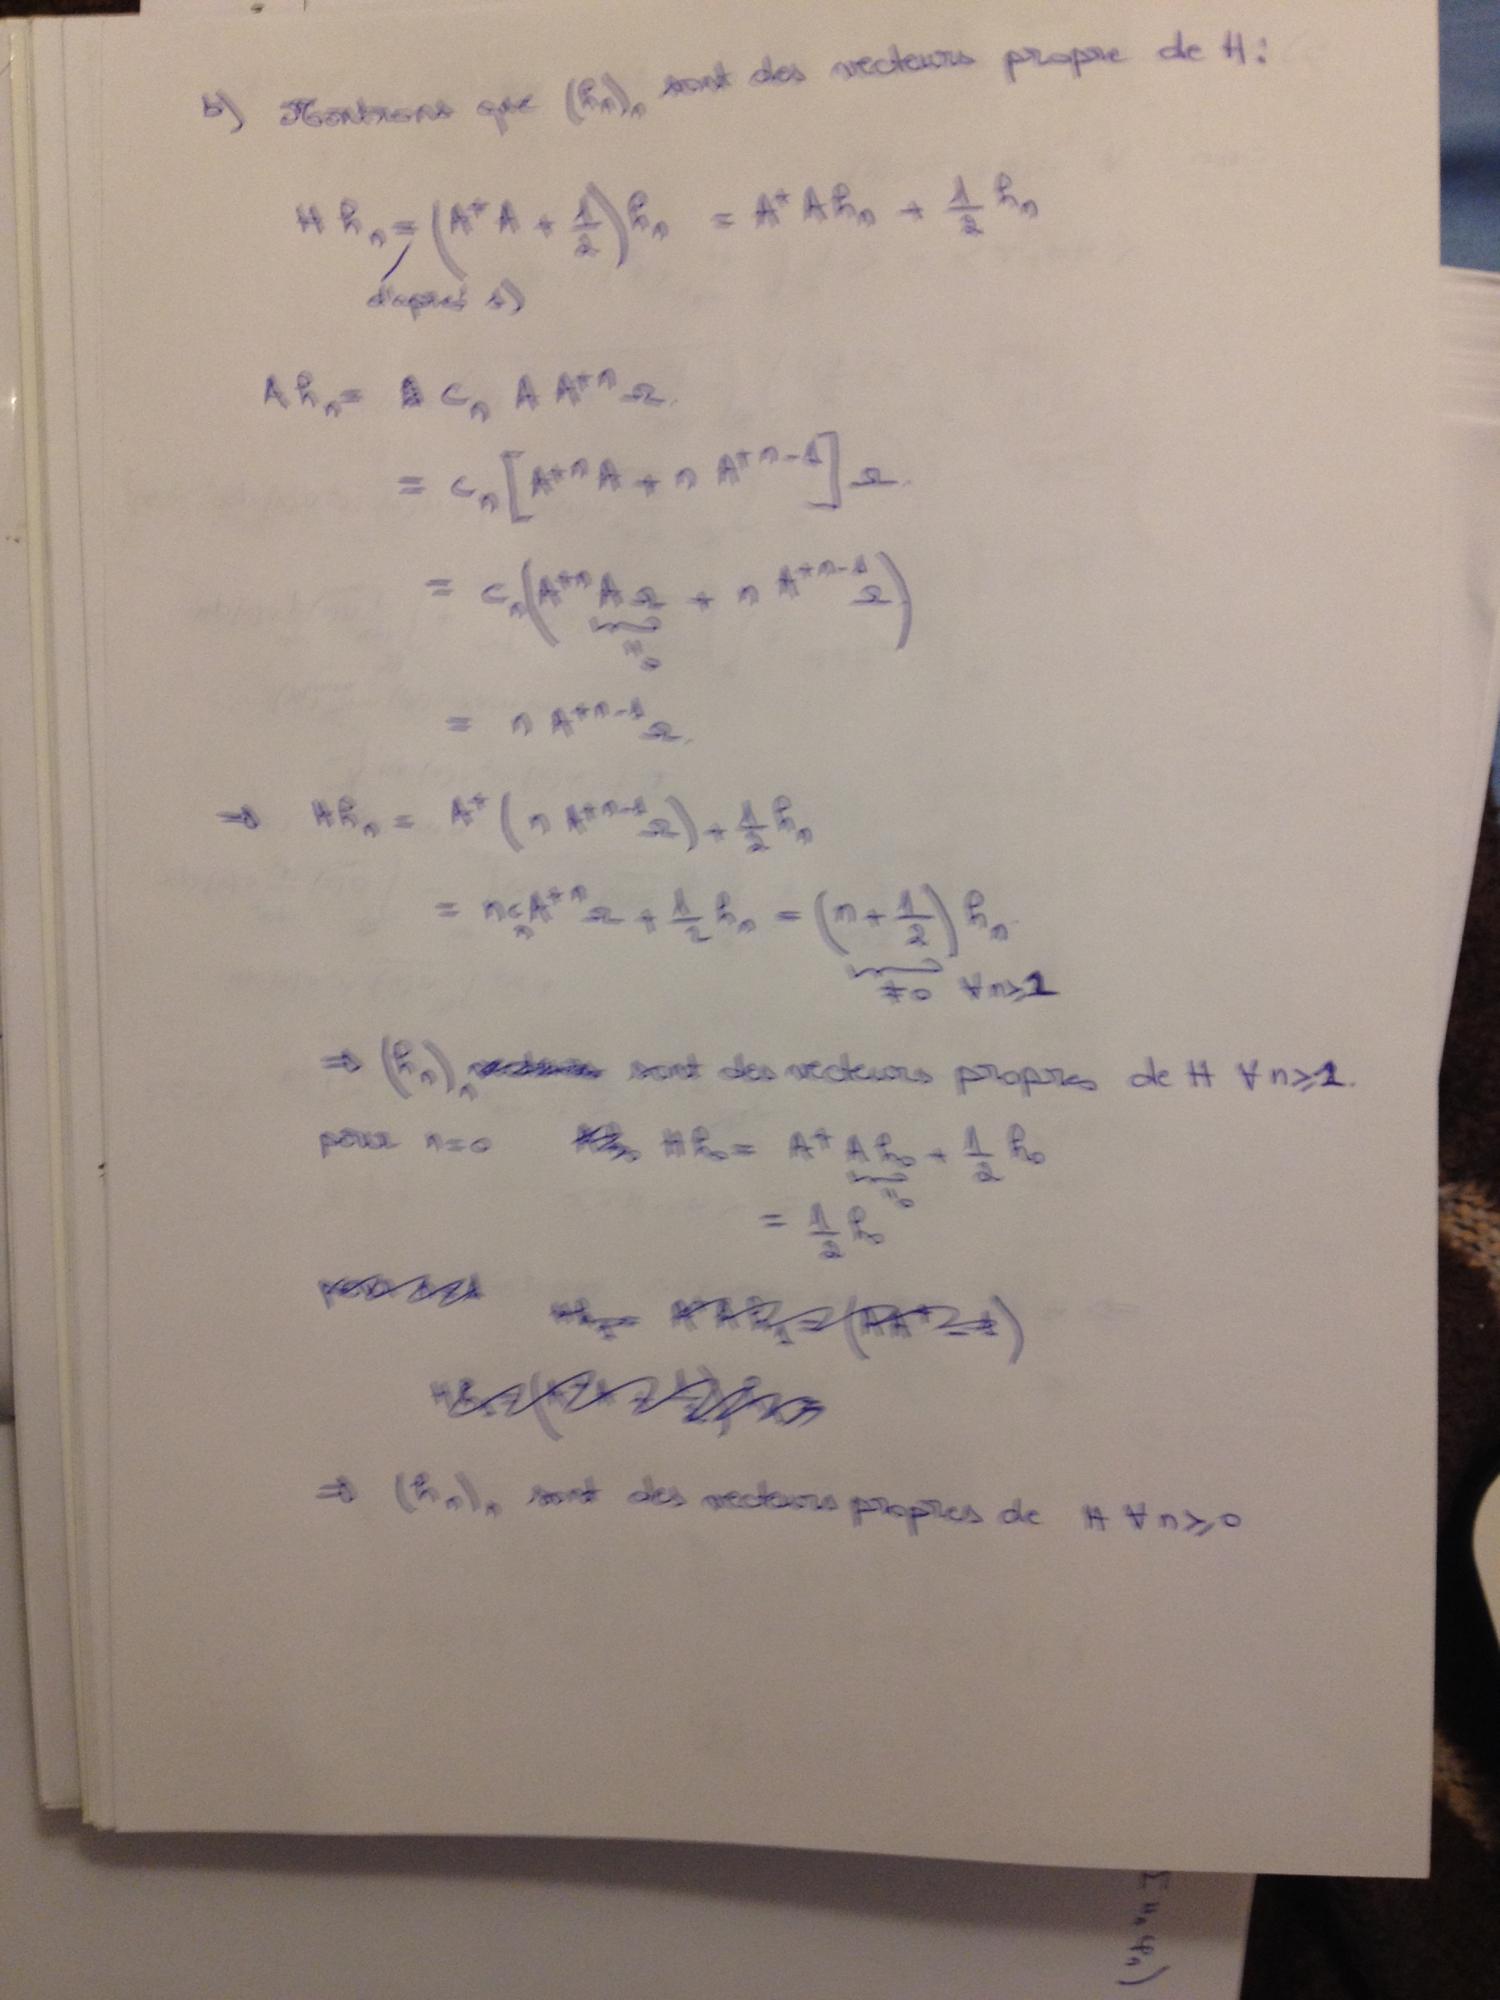 b) Montrons que (h_n)_n sont des vecteurs propre de H :
H h_n = (A* A + 1/2) h_n = A* A h_n + 1/2 h_n
d'après
A h_n = c_n A A*^n Ω
= c_n [A*^n A + n A*^{n-1}] Ω
= c_n (A*^n A Ω + n A*^{n-1} Ω)
= 0
= n A*^{n-1} Ω
⇒ H h_n = A* (n A*^{n-1} Ω) + 1/2 h_n
= n c_n A*^n Ω + 1/2 h_n = (n + 1/2) h_n
≠ 0 ∀ n ≥ 1
⇒ (h_n)_n sont des vecteurs propres de H ∀ n ≥ 1.
pour n = 0 H h_0 = A* A h_0 + 1/2 h_0
= 0
= 1/2 h_0
⇒ (h_n)_n sont des vecteurs propres de H ∀ n ≥ 0